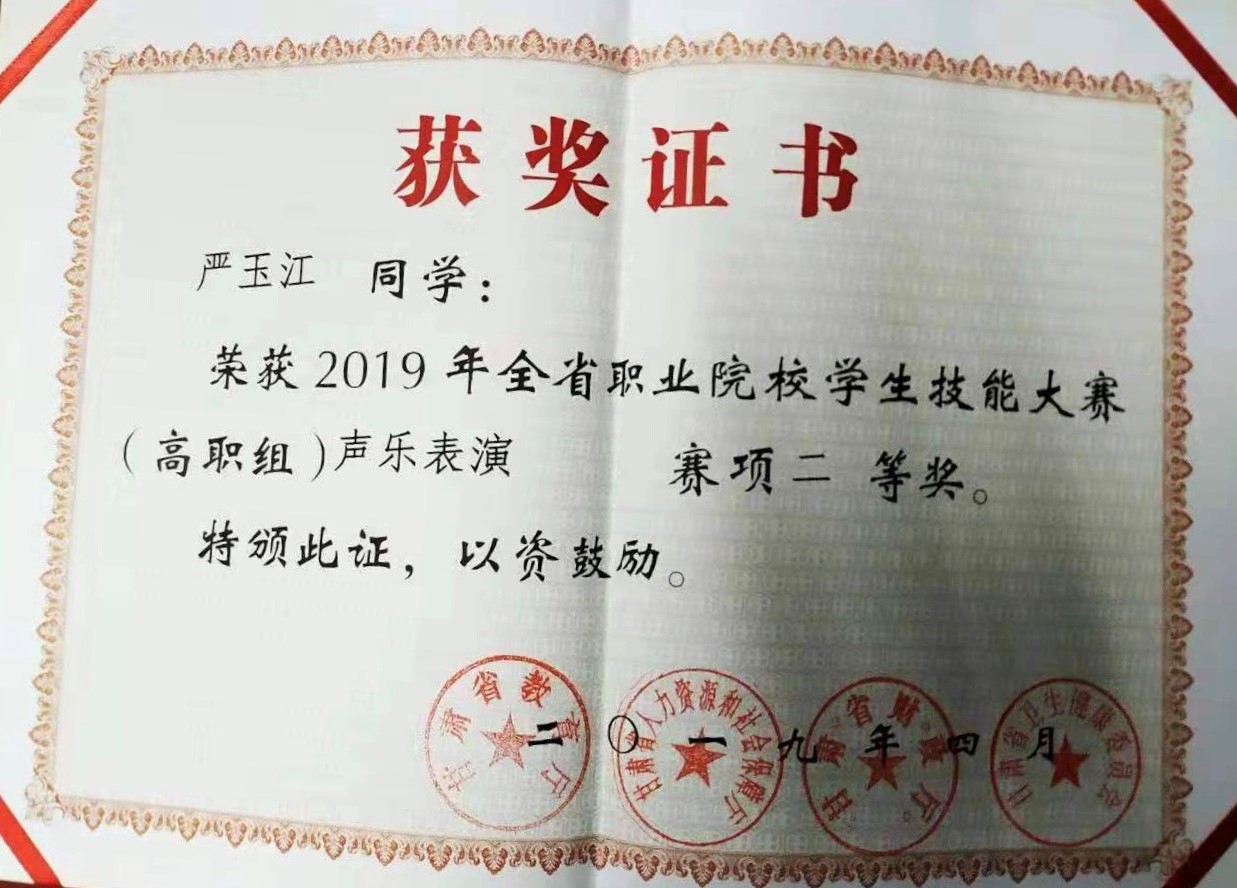 获奖证书
严玉江 同学：
荣获2019年全省职业院校学生技能大赛
（高职组)声乐表演 赛项二 等奖。
特颁此证，以资鼓励。
二〇一九年四月
甘肃省教育厅
甘肃省人力资源和社会保障厅
甘肃省财政厅
甘肃省卫生健康委员会